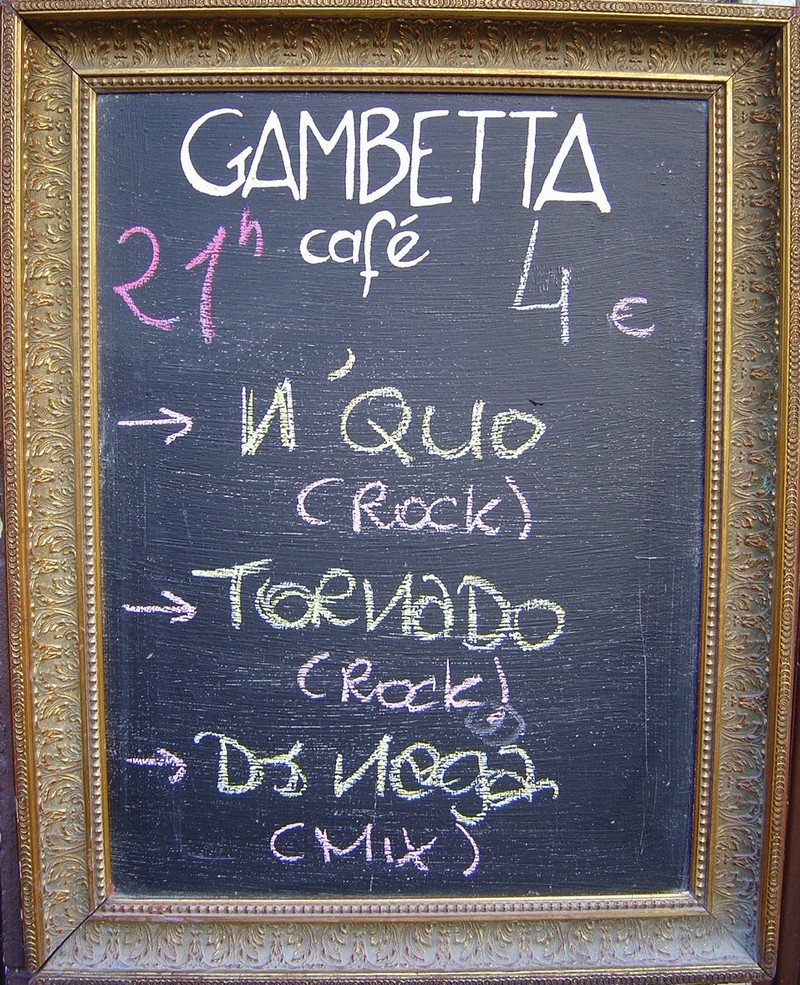 GAMBETTA
café
21h 4 €
→ N'QUO
(ROCK)
→ TORNADO
(ROCK)
→ DJ Nega
(MIX)